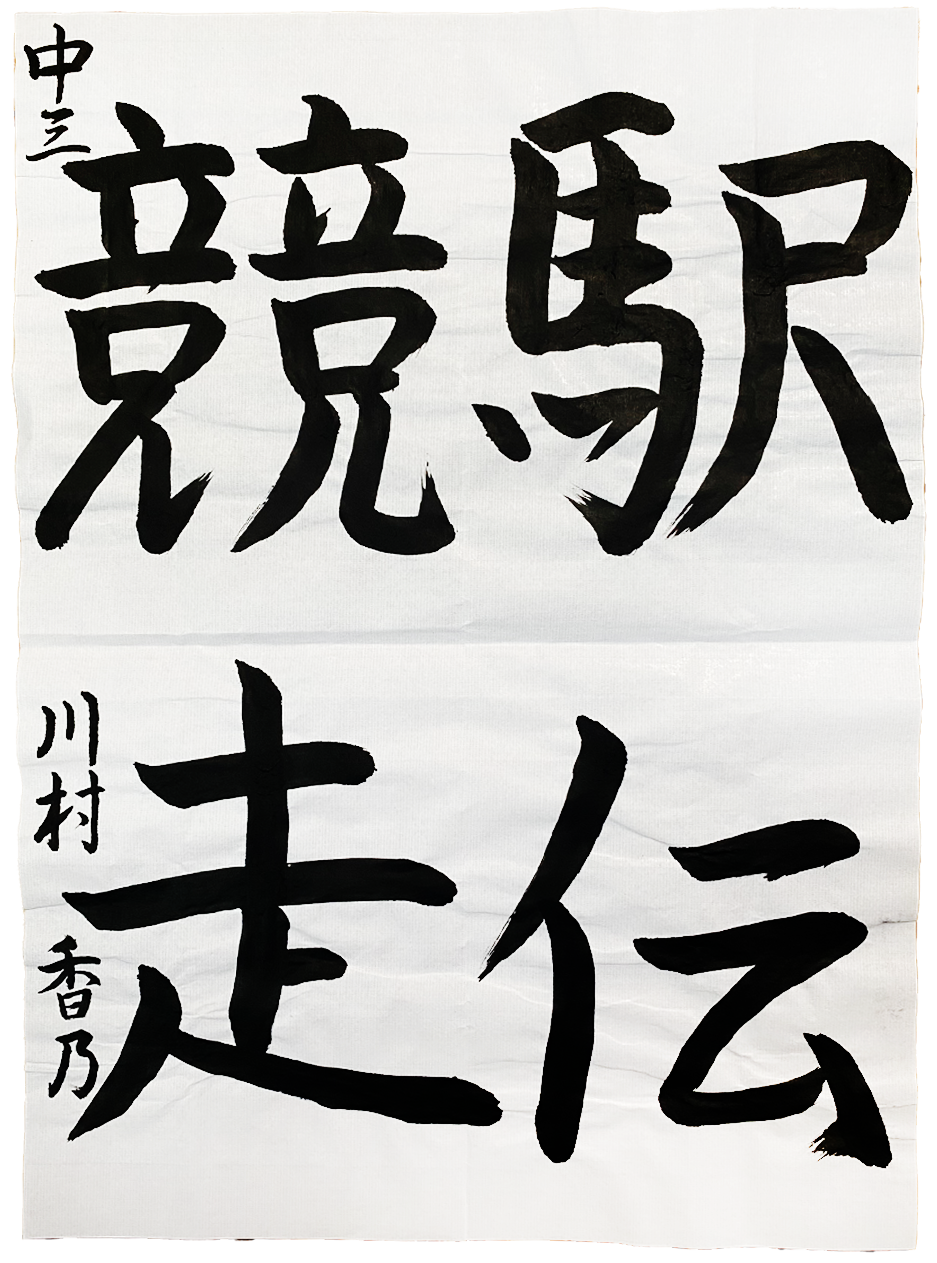 駅伝
競走
中三 川村 香乃